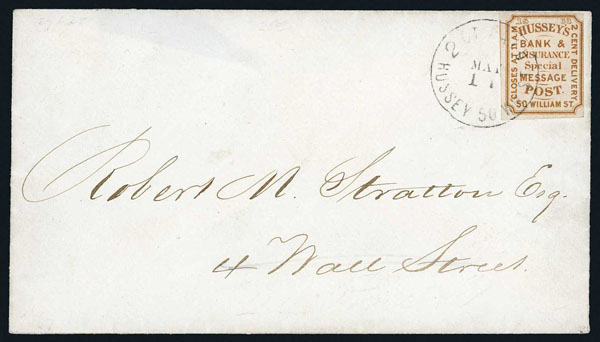 HUSSEY'S
BANK &
INSURANCE
Special
MESSAGE
POST.
50 WILLIAM ST.
CLOSES AT 11 A.M.
2 CENT DELIVERY
HUSSEY 50
2
MAY
Robert M. Stratton Esq.
4 Wall Street.